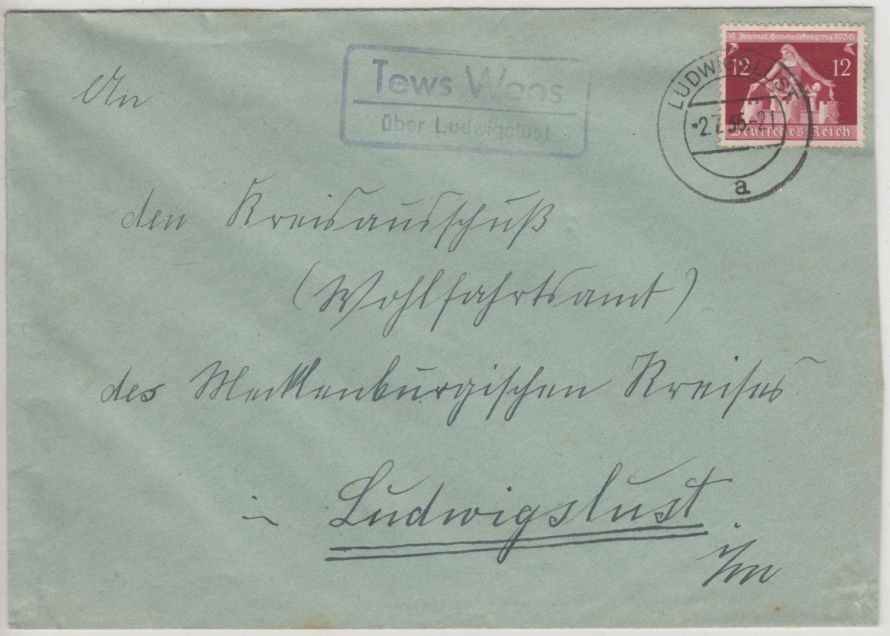 Tews Woos
über Ludwigslust
VI. Internat. Gemeindekongreß 1936
12 12
Deutsches Reich
LUDWIGSLUST
-2.7.36-21
a
An
den Kreisausschuß
(Wohlfahrtsamt)
des Mecklenburgischen Kreises
in Ludwigslust
i/m